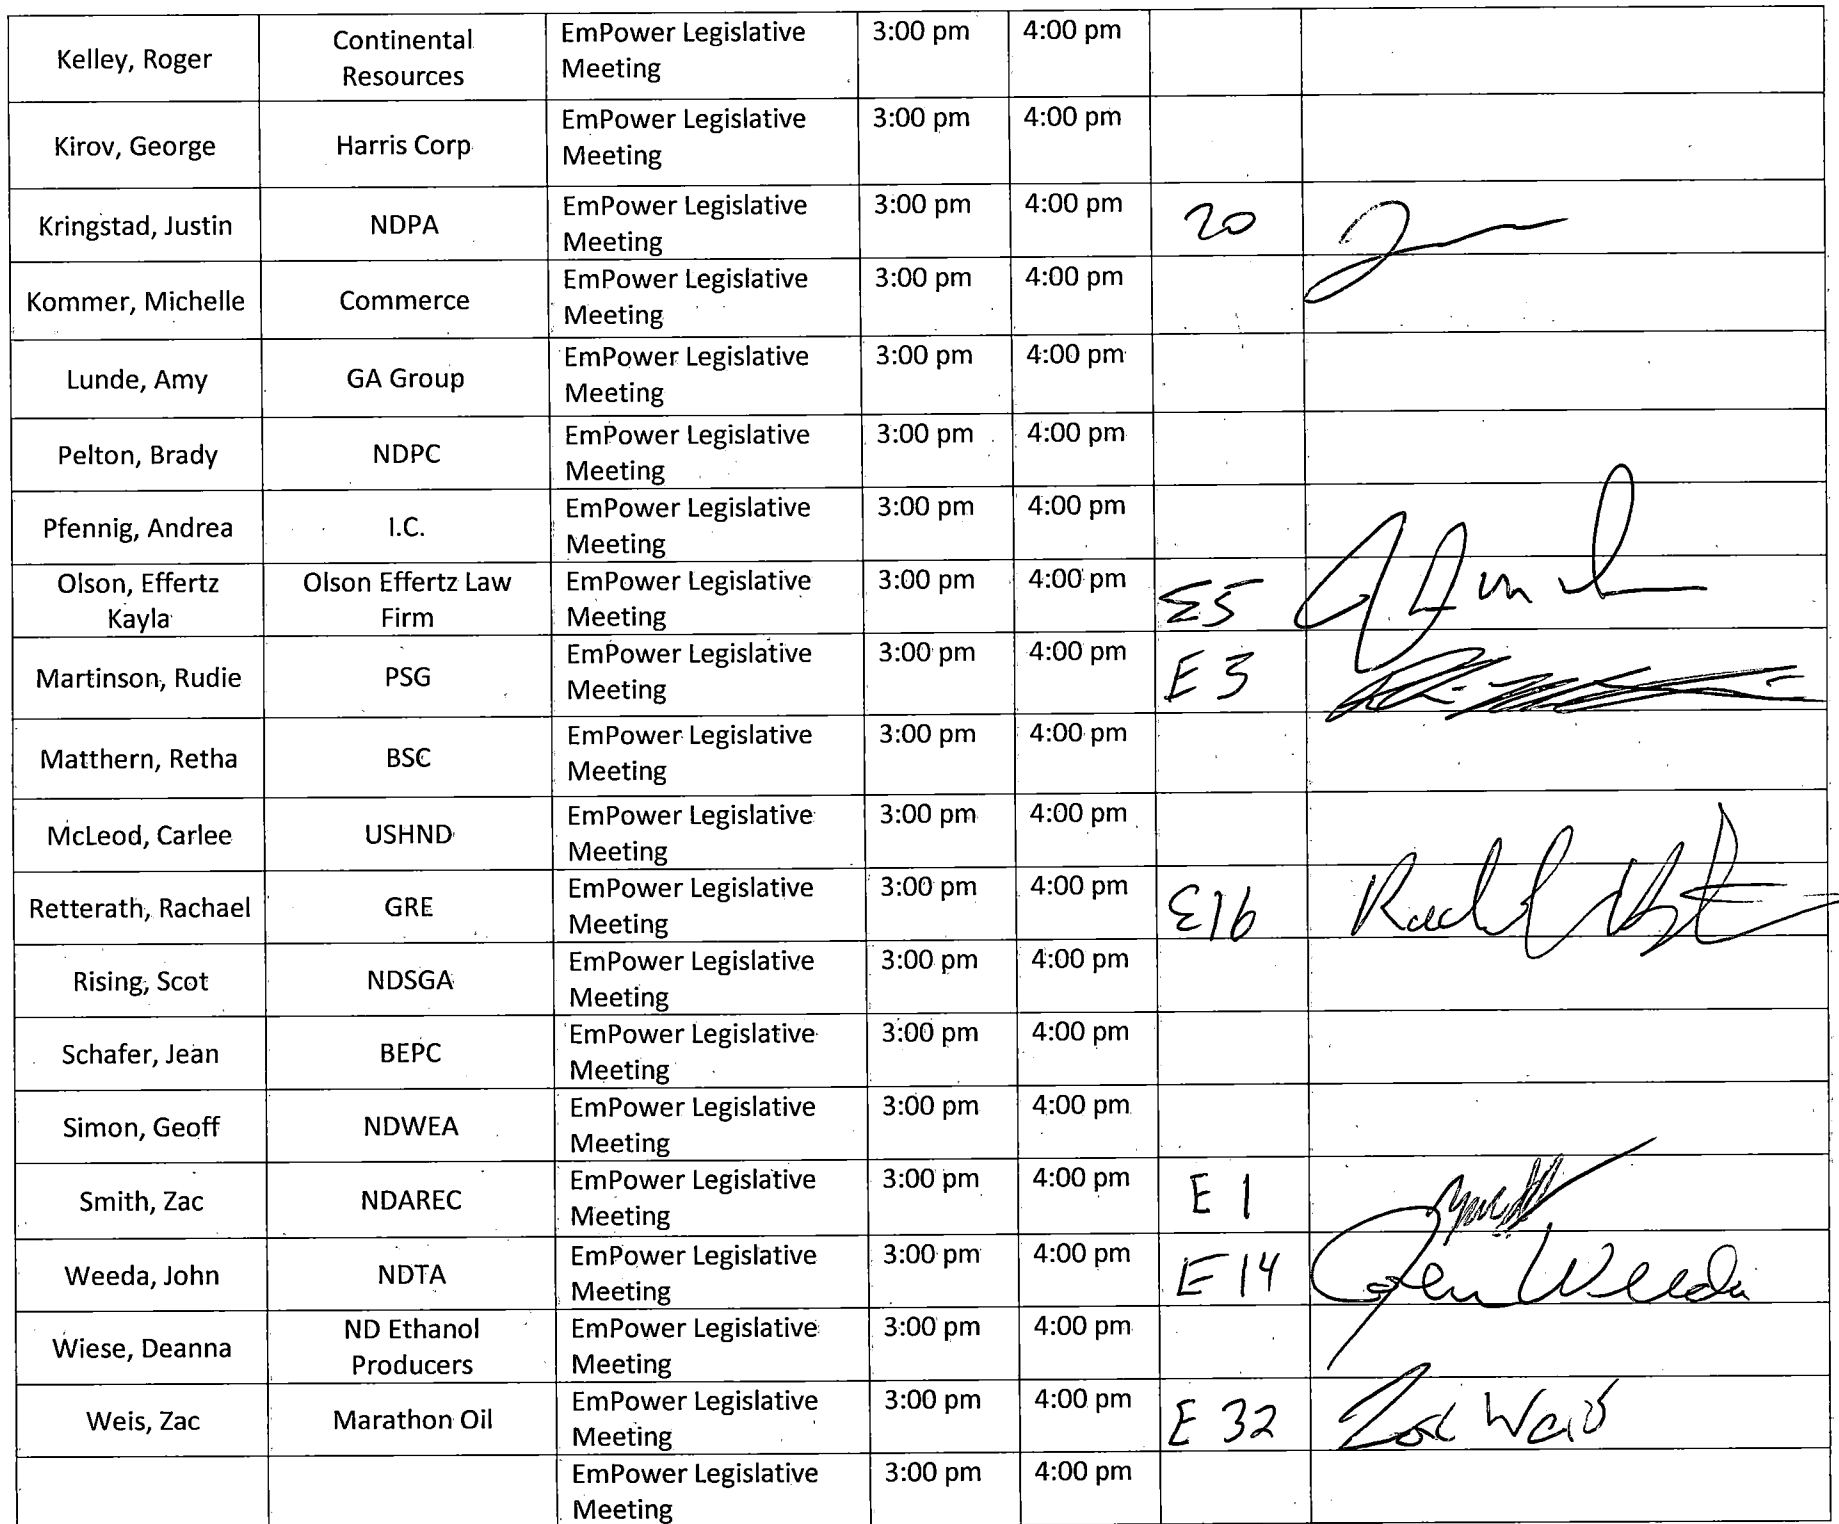 Kelley, Roger Continental Resources EmPower Legislative Meeting 3:00 pm 4:00 pm
Kirov, George Harris Corp EmPower Legislative Meeting 3:00 pm 4:00 pm
Kringstad, Justin NDPA EmPower Legislative Meeting 3:00 pm 4:00 pm 20
Kommer, Michelle Commerce EmPower Legislative Meeting 3:00 pm 4:00 pm
Lunde, Amy GA Group EmPower Legislative Meeting 3:00 pm 4:00 pm
Pelton, Brady NDPC EmPower Legislative Meeting 3:00 pm 4:00 pm
Pfennig, Andrea I.C. EmPower Legislative Meeting 3:00 pm 4:00 pm
Olson, Effertz Kayla Olson Effertz Law Firm EmPower Legislative Meeting 3:00 pm 4:00 pm E5
Martinson, Rudie PSG EmPower Legislative Meeting 3:00 pm 4:00 pm E 3
Matthern, Retha BSC EmPower Legislative Meeting 3:00 pm 4:00 pm
McLeod, Carlee USHND EmPower Legislative Meeting 3:00 pm 4:00 pm
Retterath, Rachael GRE EmPower Legislative Meeting 3:00 pm 4:00 pm E16
Rising, Scot NDSGA EmPower Legislative Meeting 3:00 pm 4:00 pm
Schafer, Jean BEPC EmPower Legislative Meeting 3:00 pm 4:00 pm
Simon, Geoff NDWEA EmPower Legislative Meeting 3:00 pm 4:00 pm
Smith, Zac NDAREC EmPower Legislative Meeting 3:00 pm 4:00 pm E 1
Weeda, John NDTA EmPower Legislative Meeting 3:00 pm 4:00 pm E 14 John Weeda
Wiese, Deanna ND Ethanol Producers EmPower Legislative Meeting 3:00 pm 4:00 pm
Weis, Zac Marathon Oil EmPower Legislative Meeting 3:00 pm 4:00 pm E 32 Zac Weis
EmPower Legislative Meeting 3:00 pm 4:00 pm